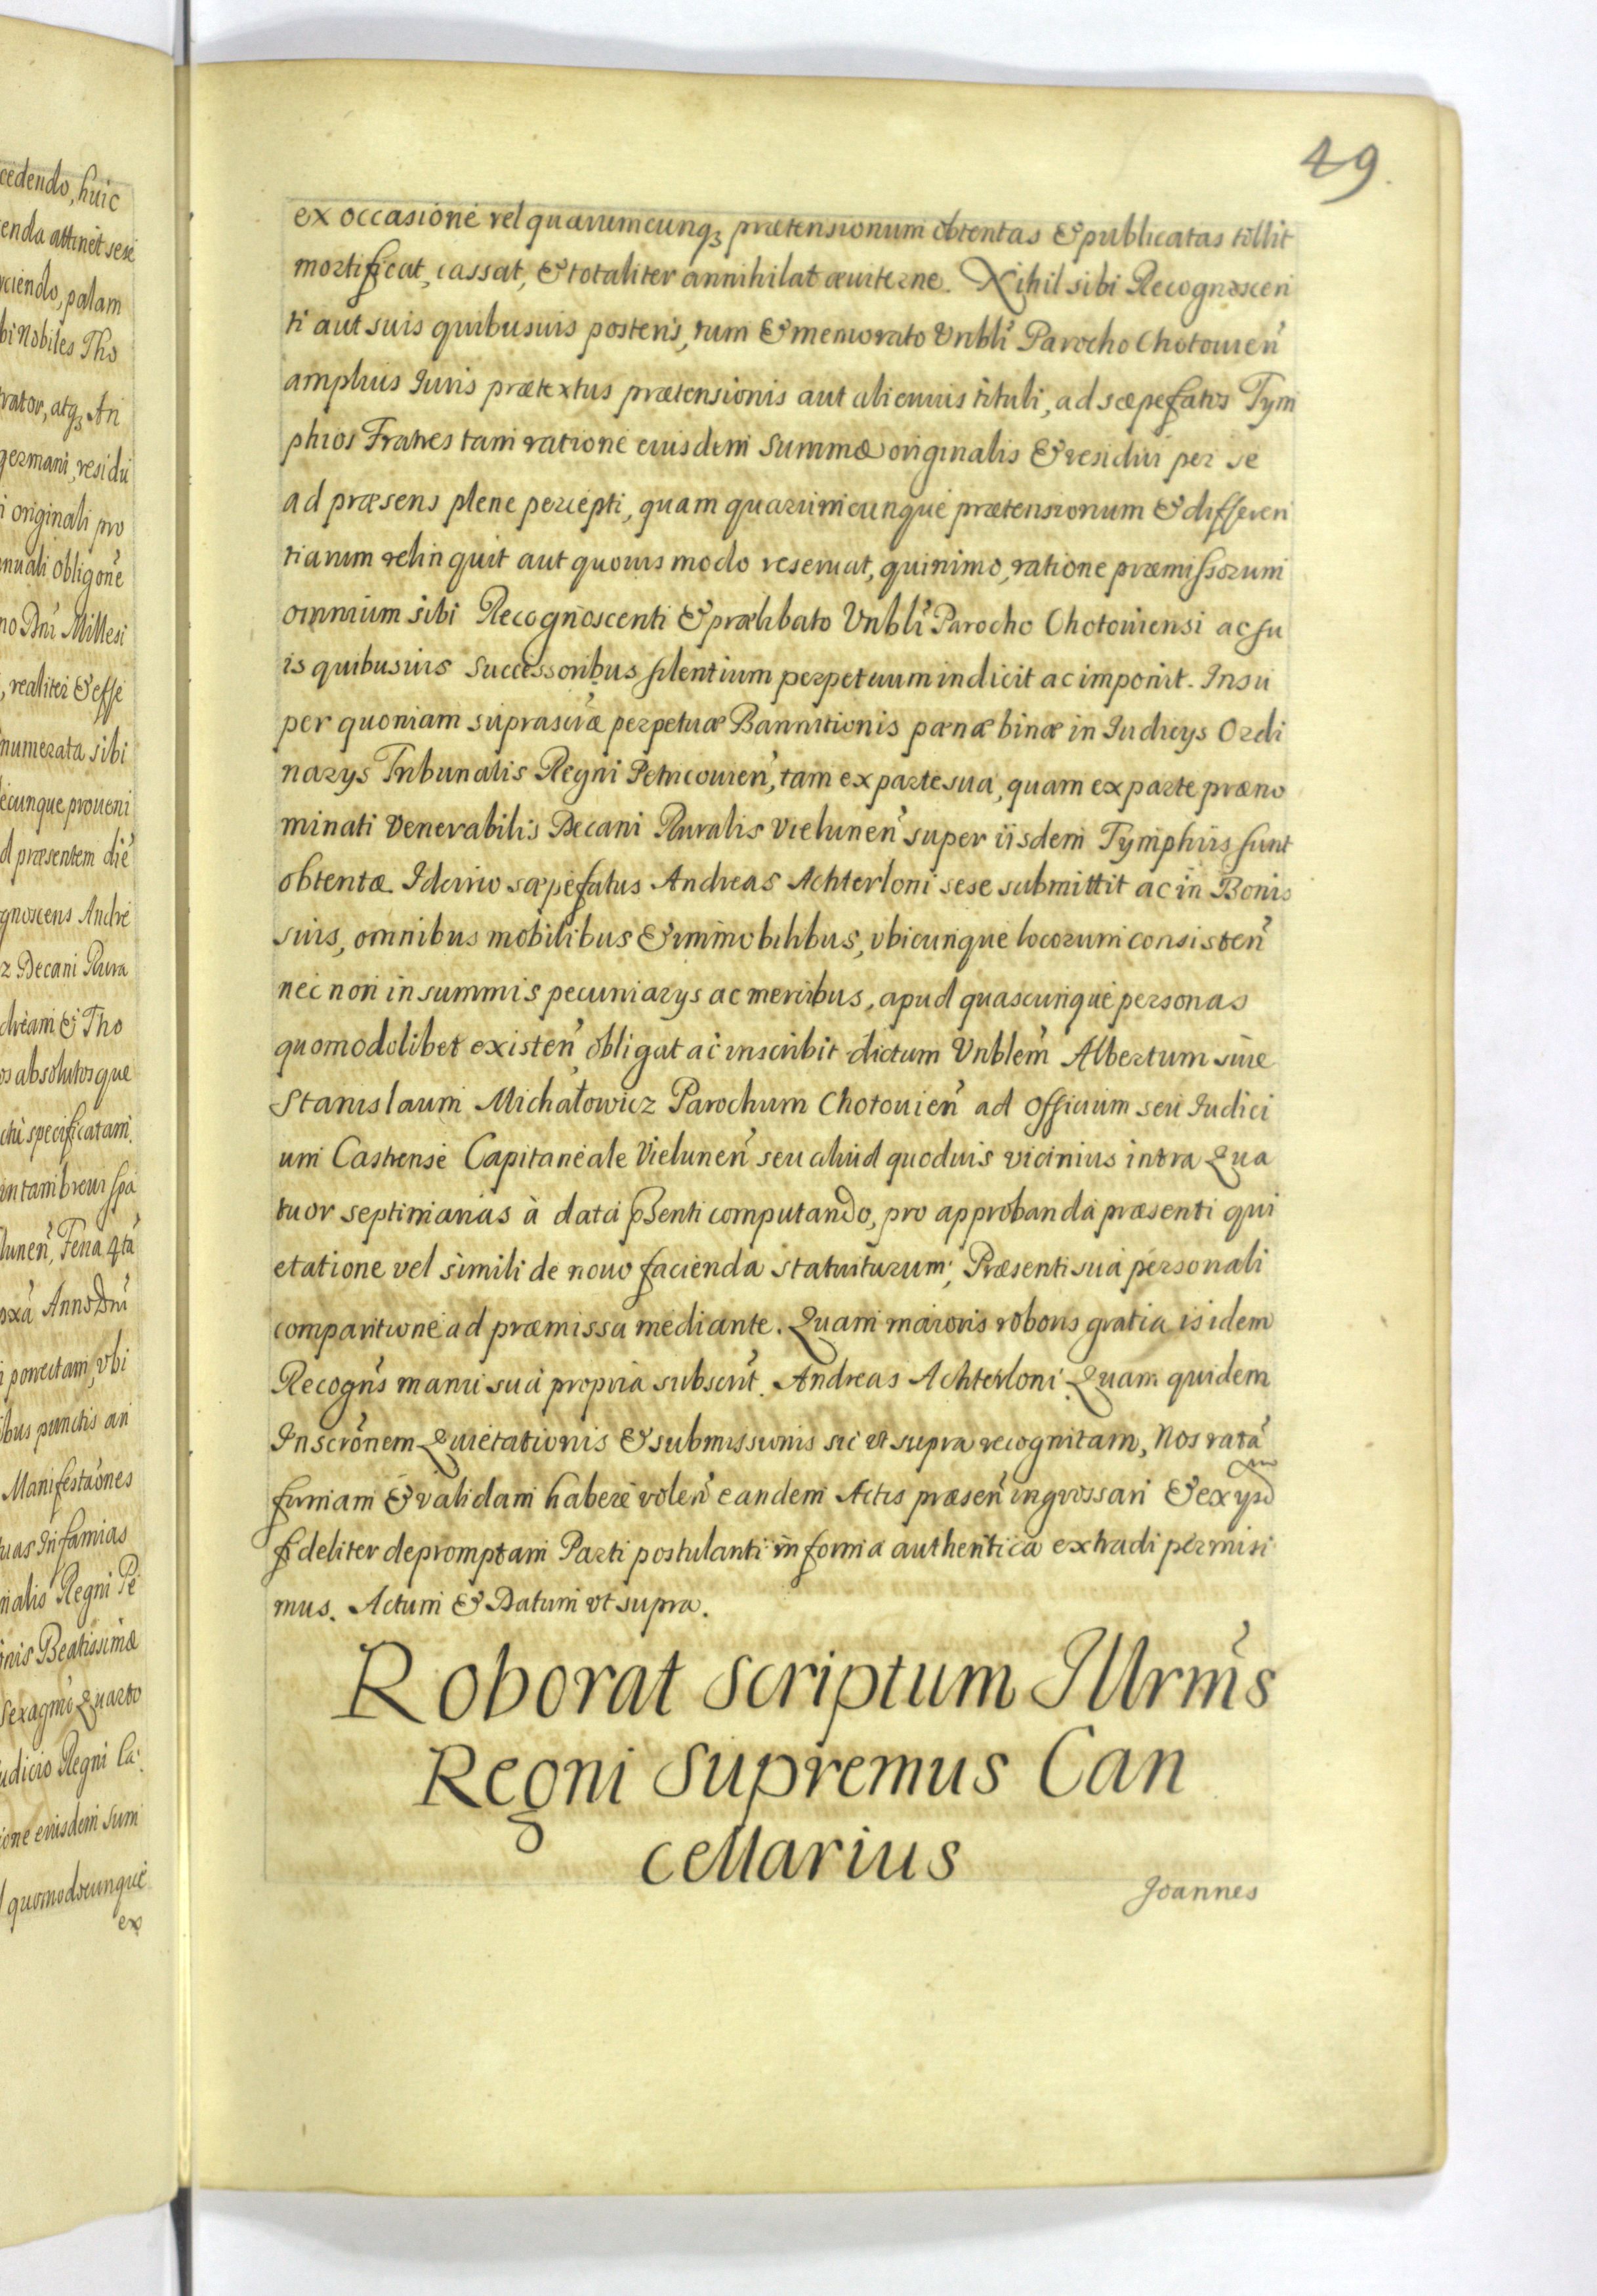 cedendo, huic
enda attinet sese
rciendo, palam
bi Nobiles Tho
rator, atq; An
germani, residu
i originali pro
nuali obligoñe
no Dñi Millesi
, realiter & effe
numerata sibi
ecunque proueni
d præsentem diẽ
gnoscens André
z Decani Rura
dream & Tho
os absolutos que
chi specificatam.
in tam breui spa
lunen̄, Feria qtā
oxā Anno Dñi
i porrectam, vbi
ibus punctis an
Manifestaōnes
uas Infamias
nalis Regni Pe
onis Beatissimæ
Sexagmō Quarto
udicio Regni Ca:
ione eiusdem Sum
quomodocunque
ex
49.
ex occasione vel quarumcunq; prætensionum obtentas & publicatas tollit
mortificat, cassat, & totaliter annihilat æuiterne. Nihil sibi Recognoscen
ti aut suis quibusuis posteris, tum & memorato Vnbli Parocho Chotouien̄
amplius Iuris prætextus prætensionis aut alicuius tituli, ad sæpefatos Tym
phios Fratres tam ratione eiusdem Summæ originalis & residui per se
ad præsens plene percepti, quam quarumcunque prætensionum & differen
tiarum relinquit aut quouis modo reseruat, quinimo, ratione præmissorum
omnium sibi Recognoscenti & prælibato Vnbli Parocho Chotouiensi ac su
is quibusuis Successoribus silentium perpetuum indicit ac imponit. Insu
per quoniam suprascræ perpetuæ Bannitionis pœnæ binæ in Iudicys Ordi
narys Tribunalis Regni Petricouien̄, tam ex parte sua, quam ex parte præno
minati Venerabilis Decani Ruralis Vielunen̄ super iisdem Tymphiis sunt
obtentæ. Idcirco sæpefatus Andreas Achterloni sese submittit ac in Bonis
suis, omnibus mobilibus & immobilibus, vbicunque locorum consisten̄
nec non in summis pecuniarys ac mercibus, apud quascunque personas
quomodolibet existen̄ obligat ac inscribit dictum Vnblem Albertum siue
Stanislaum Michałowicz Parochum Chotouien̄ ad Officium seu Iudici
um Castrense Capitaneale Vielunen̄ seu aliud quoduis vicinius intra Qua
tuor septimanas à data pßenti computando, pro approbanda præsenti qui
etatione vel simili de nouo facienda statuiturum; Præsenti sua personali
comparitione ad præmissa mediante. Quam maioris roboris gratia is idem
Recogns̄ manu sua propria subscrt̄. Andreas Achterloni. Quam quidem
Inscrōnem Quietationis & submissionis sic vt supra recognitam, Nos ratā
firmam & validam habere volen̄ eandem Actis præsen̄ ingrossari & ex ysd
fideliter depromptam Parti postulanti in forma authentica extradi permisi
mus. Actum & Datum vt supra.
Roborat scriptum Illrm̄s
Regni Supremus Can
cellarius
Joannes